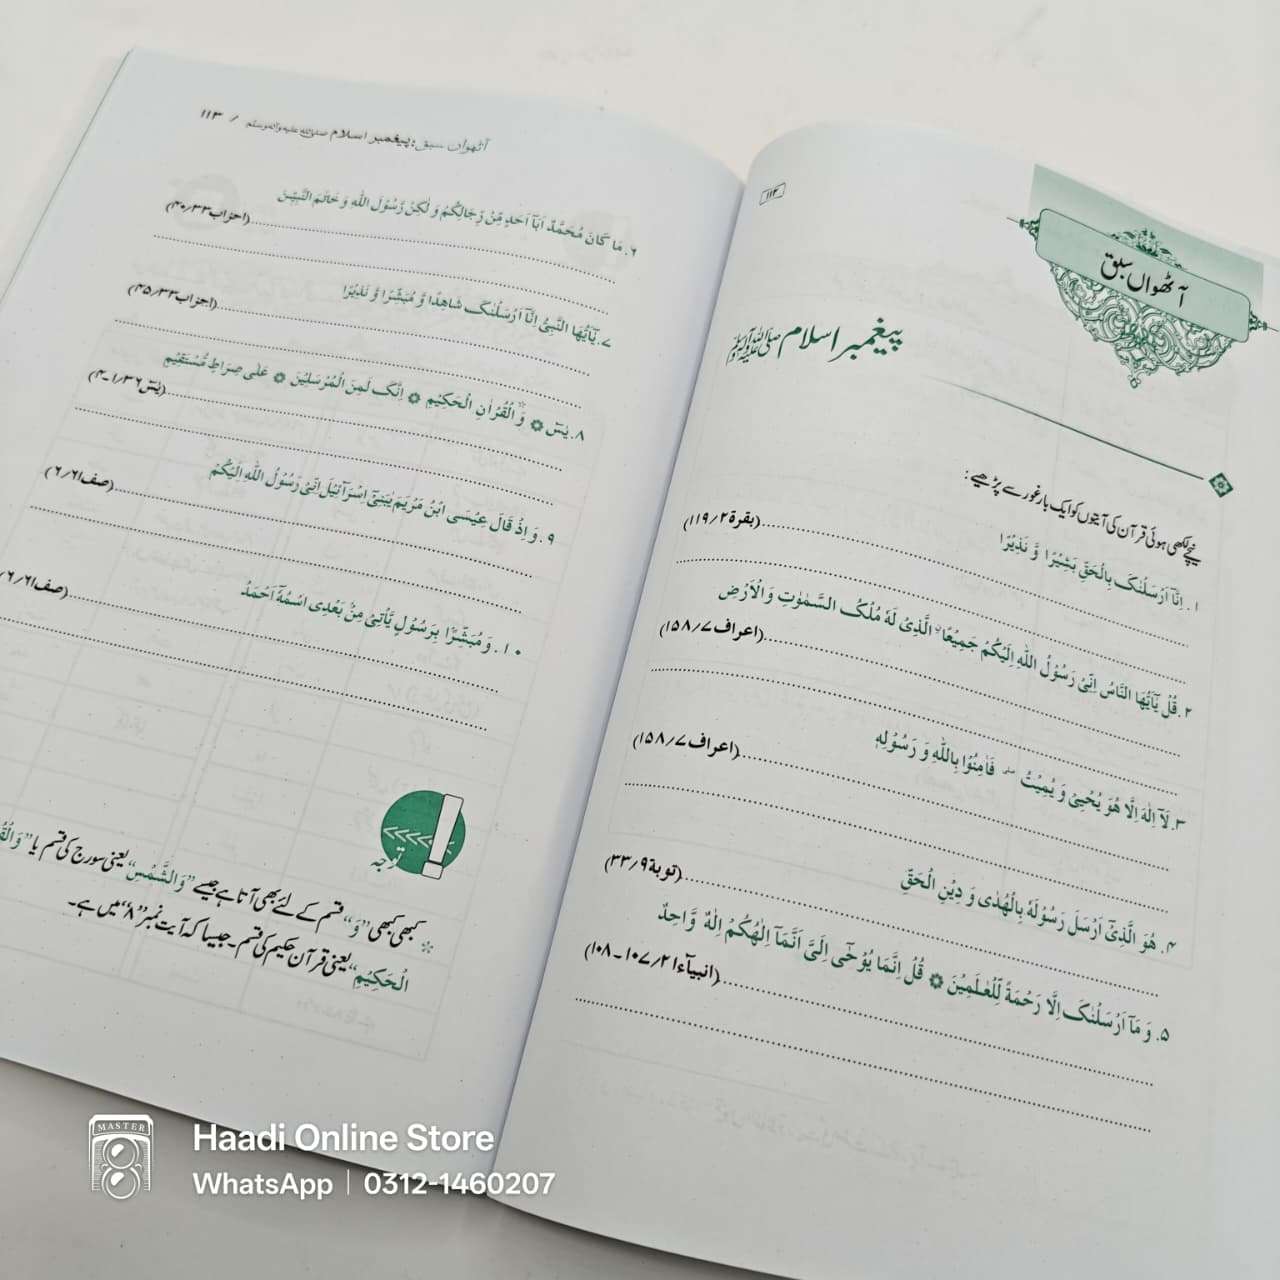 ۱۱۲
آٹھواں سبق
پیغمبر اسلام صلی اللہ علیہ وآلہ وسلم
نیچے لکھی ہوئی قرآن کی آیتوں کو ایک بار غور سے پڑھیے :
۱. اِنَّاۤ اَرْسَلْنٰکَ بِالْحَقِّ بَشِیْرًا وَّ نَذِیْرًا
(بقرۃ ۱۱۹/۲)
۲. قُلْ یٰۤاَیُّهَا النَّاسُ اِنِّیْ رَسُوْلُ اللّٰهِ اِلَیْکُمْ جَمِیْعًا ۨ الَّذِیْ لَهٗ مُلْکُ السَّمٰوٰتِ وَ الْاَرْضِ
(اعراف ۱۵۸/۷)
۳. لَاۤ اِلٰهَ اِلَّا هُوَ یُحْیٖ وَ یُمِیْتُ ۪ فَاٰمِنُوْا بِاللّٰهِ وَ رَسُوْلِهِ
(اعراف ۱۵۸/۷)
۴. هُوَ الَّذِیْۤ اَرْسَلَ رَسُوْلَهٗ بِالْهُدٰی وَ دِیْنِ الْحَقِّ
(توبۃ ۳۳/۹)
۵. وَ مَاۤ اَرْسَلْنٰکَ اِلَّا رَحْمَةً لِّلْعٰلَمِیْنَ ۞ قُلْ اِنَّمَا یُوْحٰۤی اِلَیَّ اَنَّمَاۤ اِلٰهُکُمْ اِلٰهٌ وَّاحِدٌ
(انبیآء ۱۰۷/۲۱ـ۱۰۸)
آٹھواں سبق: پیغمبر اسلام صلی اللہ علیہ وآلہ وسلم / ۱۱۳
۶. مَا کَانَ مُحَمَّدٌ اَبَاۤ اَحَدٍ مِّنْ رِّجَالِکُمْ وَ لٰکِنْ رَّسُوْلَ اللّٰهِ وَ خَاتَمَ النَّبِیّٖنَ
(احزاب ۴۰/۳۳)
۷. یٰۤاَیُّهَا النَّبِیُّ اِنَّاۤ اَرْسَلْنٰکَ شَاهِدًا وَّ مُبَشِّرًا وَّ نَذِیْرًا
(احزاب ۴۵/۳۳)
۸. یٰسٓ ۞ وَ الْقُرْاٰنِ الْحَکِیْمِ ۞ اِنَّکَ لَمِنَ الْمُرْسَلِیْنَ ۞ عَلٰی صِرَاطٍ مُّسْتَقِیْمٍ
(یٰسٓ ۱/۳۶ـ۴)
۹. وَ اِذْ قَالَ عِیْسَی ابْنُ مَرْیَمَ یٰبَنِیْۤ اِسْرَآئِیْلَ اِنِّیْ رَسُوْلُ اللّٰهِ اِلَیْکُمْ
(صف ۶/۶۱)
۱۰. وَ مُبَشِّرًۢا بِرَسُوْلٍ یَّاْتِیْ مِنْۢ بَعْدِی اسْمُهٗۤ اَحْمَدُ
(صف ۶/۶۱
توجہ
* کبھی کبھی "وَ" قسم کے لئے بھی آتا ہے جیسے "وَالشَّمْسِ" یعنی سورج کی قسم یا
الْحَکِیْمِ" یعنی قرآن حکیم کی قسم۔ جیسا کہ آیت نمبر "۸" میں ہے۔
MASTER
Haadi Online Store
WhatsApp | 0312-1460207